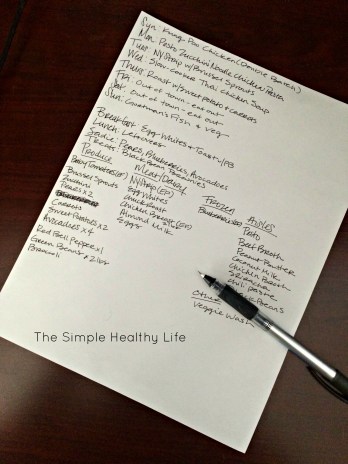 Sun: Kung Pao Chicken (Double Batch)
Mon: Pesto Zucchini Noodle Chicken
Tues: NY Strip w/ Brussel Sprouts
Wed: Slow-cooker Thai Chicken Soup
Thurs: Roast w/ Sweet potato & carrots
Fri: Out of town - eat out
Sat: Out of town - eat out
Sun: Gorton's Fish & veg
Breakfast: Egg Whites & Toast w/ PB
Lunch: Leftovers
Pears, Blueberries, Avocadoes
Treats: Black Bean Brownies
Produce
Baby Tomatoes
Brussel Sprouts
Zucchini
Pears x 2
Carrots
Sweet Potatoes x 2
Avocadoes x 4
Red Bell Pepper x 1
Green Beans x 2 lbs
Broccoli
Meat/Dairy
NY Strip
Egg Whites
Chuck Roast
Chicken Breast
Almond Milk
Eggs
Frozen
Aisles
Pesto
Beef Broth
Peanut Butter
Coconut Milk
Chicken Broth
Sriracha
Chili paste
Beans
Other
Veggie Wash
The Simple Healthy Life